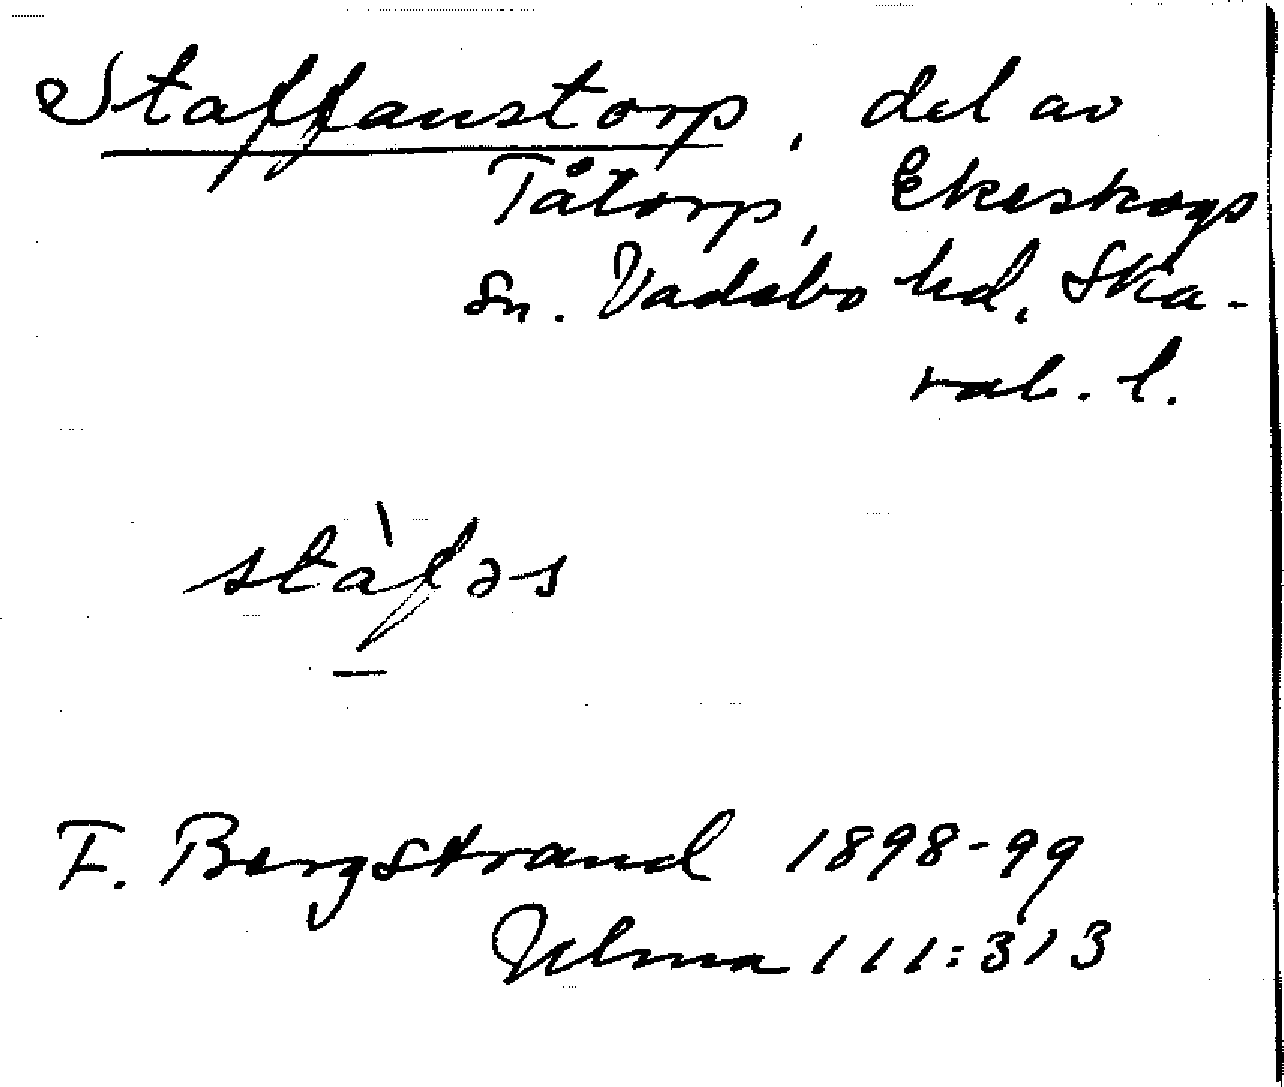 Staffanstorp, del av
Tåtorp, Ekeskogs
sn. Vadsbo hd, Ska-
rab. l.
stàfəs
F. Bergstrand 1898-99
Ulma 111:313